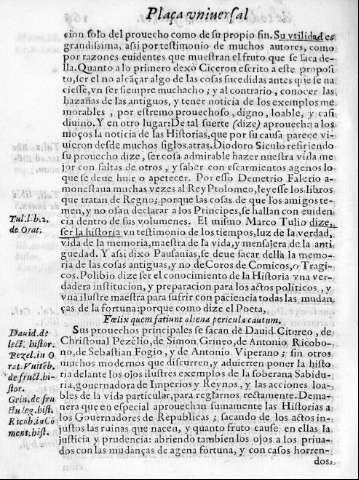 Plaça vniuersal
cion solo del prouecho como de su propio fin. Su vtilidad es
grandissima, assi por testimonio de muchos autores, como
por razones euidentes que muestran el fruto que se saca de-
lla. Quanto a lo primero dexò Ciceron escrito a este proposi
to, ser el no alcãçar algo de las cosas sucedidas antes que se na
ciesse, vn ser siempre muchacho; y al contrario, conocer las
hazañas de los antiguos, y tener noticia de los exemplos me
morables, por estremo prouechoso, digno, loable, y casi
diuino. Y en otro lugar: De tal suerte (dize) aprouecha a los
moços la noticia de las Historias, que por su causa parece vi-
uieron desde muchos siglos atras. Diodoro Siculo refiriendo
su prouecho dize, ser cosa admirable hazer nuestra vida me
jor con faltas de otros, y saber con escarmientos agenos lo
que se deue huir o apetecer. Por esso Demetrio Falerio a-
monestaua muchas vezes al Rey Ptolomeo, leyesse los libros
que tratan de Regno; porque las cosas de que los amigos te-
men, y no osan declarar a los Principes, se hallan con euiden
cia dentro de sus volumenes. El mismo Marco Tulio dize,
Tul. lib. 2.
de Orat.
ser la historia vn testimonio de los tiempos, luz de la verdad,
vida de la memoria, maestra de la vida, y mensajera de la anti
guedad. Y assi dixo Pausanias, se deue sacar della la memo-
ria de las cosas antiguas, y no de Coros de Comicos, o Tragi-
cos. Polibio dize ser el conocimiento de la Historia vna ver-
dadera institucion, y preparacion para los actos politicos, y
vna ilustre maestra para sufrir con paciencia todas las mudan
ças de la fortuna porque como dize el Poeta,
Fœlix quem faciunt aliena pericula cautum,
Dauid. de
lect. histor.
Sus prouechos principales se sacan de Dauid Citereo, de
Christoual Pezelio, de Simon Grineo, de Antonio Ricobo-
no, de Sebastian Fogio, y de Antonio Viperano; sin otros
muchos modernos que discurren, y aduierten poner la histo
ria delante los ojos ilustres exemplos de la soberana Sabidu-
ria, gouernadora de Imperios y Reynos, y las acciones loa-
bles de la vida particular, para reglarnos rectamente. Dema
nera que en especial aprouechan sumamente las Historias a
los Gouernadores de Republicas; sacando de los actos in-
justos las ruinas que nacen, y quanto fruto cause en ellas la
justicia y prudencia: abriendo tambien los ojos a los priua-
dos con las mudanças de agena fortuna, y con casos horren-
dos.